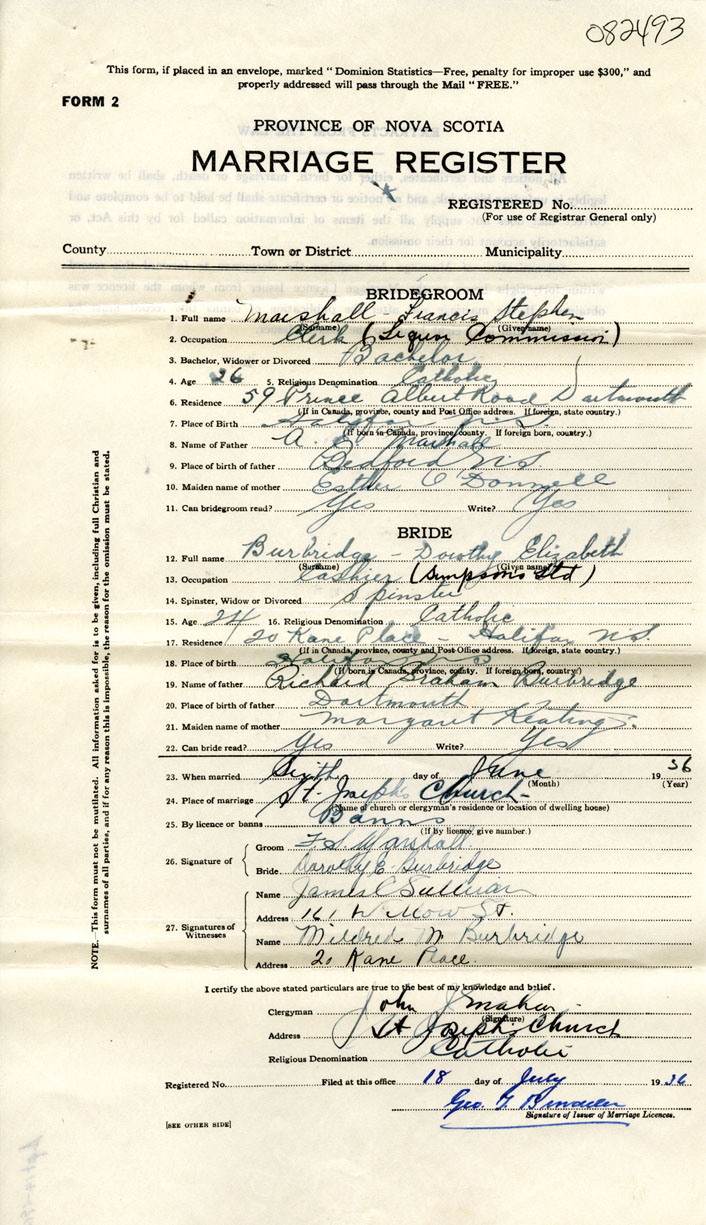 082493
This form, if placed in an envelope, marked "Dominion Statistics—Free, penalty for improper use $300," and
properly addressed will pass through the Mail "FREE."
FORM 2
PROVINCE OF NOVA SCOTIA
MARRIAGE REGISTER
REGISTERED No.
(For use of Registrar General only)
County Town or District Municipality
BRIDEGROOM
1. Full name Marshall - Francis Stephen
(Surname) (Given name)
2. Occupation Clerk (Liquor Commission)
3. Bachelor, Widower or Divorced Bachelor
4. Age 26 5. Religious Denomination Catholic
6. Residence 59 Prince Albert Road Dartmouth
(If in Canada, province, county and Post Office address. If foreign, state country.)
7. Place of Birth Halifax N.S.
(If born in Canada, province, county. If foreign born, country.)
8. Name of Father A. Marshall
9. Place of birth of father Bedford N.S.
10. Maiden name of mother Esther O'Donnell
11. Can bridegroom read? Yes Write? Yes
BRIDE
12. Full name Burbridge - Dorothy Elizabeth
(Surname) (Given name)
13. Occupation Cashier (Simpsons Ltd)
14. Spinster, Widow or Divorced Spinster
15. Age 24 16. Religious Denomination Catholic
17. Residence 20 Kane Place - Halifax N.S.
(If in Canada, province, county and Post Office address. If foreign, state country.)
18. Place of birth Halifax N.S.
(If born in Canada, province, county. If foreign born, country.)
19. Name of father Richard Graham Burbridge
20. Place of birth of father Dartmouth
21. Maiden name of mother Margaret Keating
22. Can bride read? Yes Write? Yes
23. When married Sixth day of June 1936
(Month) (Year)
24. Place of marriage St. Josephs Church
(Name of church or clergyman's residence or location of dwelling house)
25. By licence or banns Banns
(If by licence, give number.)
26. Signature of Groom F S Marshall
Bride Dorothy E. Burbridge
27. Signatures of Witnesses
Name James C Sullivan
Address 161 Willow St.
Name Mildred M Burbridge
Address 20 Kane Place.
I certify the above stated particulars are true to the best of my knowledge and belief.
Clergyman John J Mahar
(Signature)
Address St Joseph's Church
Religious Denomination Catholic
Registered No. Filed at this office 18 day of July 1936
Geo. T.
Signature of Issuer of Marriage Licences.
[SEE OTHER SIDE]
NOTE.—This form must not be mutilated. All information asked for is to be given, including full Christian and
surnames of all parties, and if for any reason this is impossible, the reason for the omission must be stated.